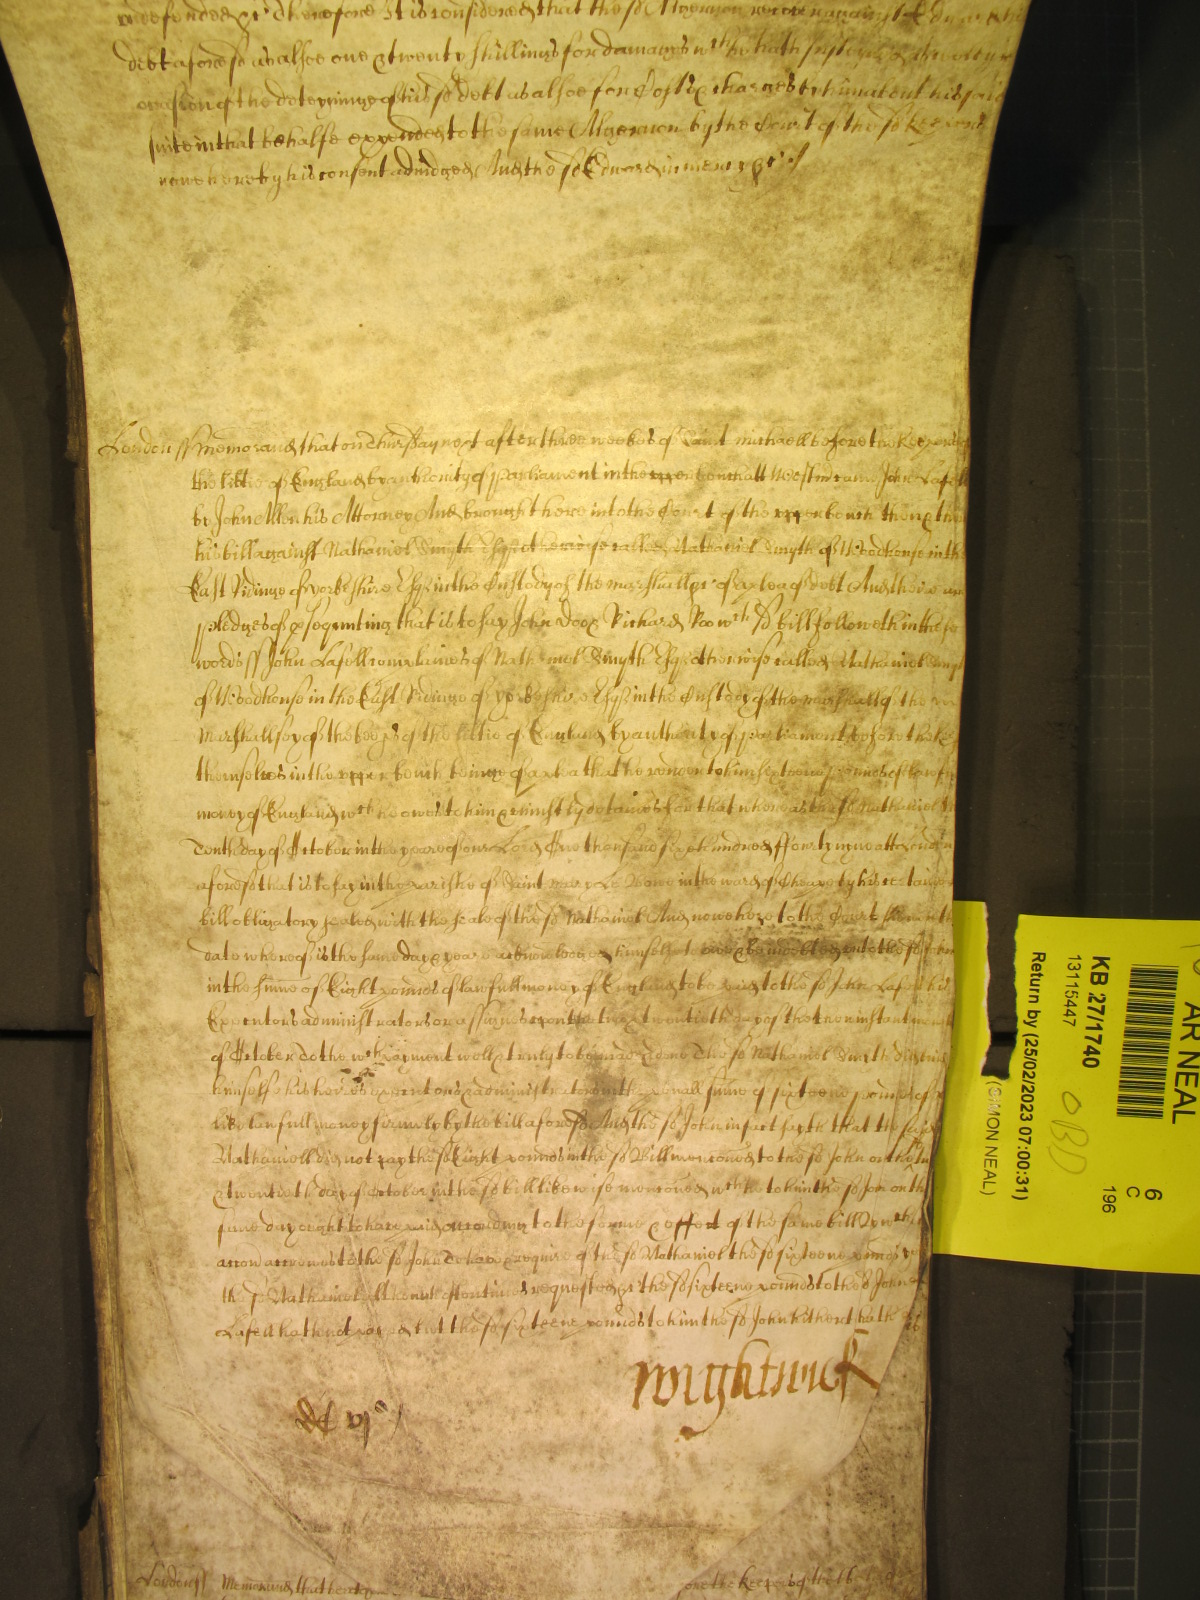 defended &c Therefore It is considered that the sd Algernon recover against Edward his
debt aforesd as alsoe one & twenty shillings for damages wch he hath susteyned
occasion of the deteyninge of his sd debt as alsoe for Costs & charges by him about his said
suite in that behalfe expended to the same Algernon by the Court of the sd Keepers
now here by his consent adiudged And the sd Edward in mercy &c
London ss Memorand that on Thursday next after three weekes of Saint Michaell before the Keepers of
the libtie of England by authority of Parliament in the upper bench att Westmr came John Lasell
by John Allen his Attorney And brought here into the Court of the upper bench then & there
his bill against Nathaniel Smyth Esqr otherwise called Nathaniel Smyth of Woodhouse in the
East Ridinge of Yorkeshire Esqr in the Custody of the marshall &c of a plea of debt And there are
pledges of prosecuting that is to say John Doo & Richard Roo wch sd bill followeth in these
words ss John Lasell complaines of Nathaniel Smyth Esqr otherwise called Nathaniel Smyth
of Woodhouse in the East Ridinge of Yorkeshire Esqr in the Custody of the marshall of the
Marshallsey of the keeps of the libtie of England by authority of parliament before the Keeps
themselves in the upper bench beinge of a plea that he render to him sixteene pounds of lawfull
money of England wch he owes to him & uniustly detaines For that whereas the sd Nathaniel the
Tenth day of October in the yeare of our Lord One thousand six hundred fforty nyne att London
aforesd that is to say in the parishe of Saint Mary Le Bowe in the ward of Cheape by his certaine
bill obligatory sealed with the seale of the sd Nathaniel And nowe here to the Court shewen the
date whereof is the same day & yeare acknowledged himselfe to owe & be indebted unto the sd John
in the summe of Eight pounds of lawfull money of England to be paid to the sd John Lasell his
Executors administrators or assignes upon the twentieth day of that now instant moneth
of October To the wch payment well & truly to be made & done The sd Nathaniel Smith did binde
himselfe his heires executors & administrators in the penall summe of sixteene pounds of
like lawfull money firmely by the bill aforesd And the sd John in fact sayth that the said
Nathaniell did not pay the sd Eight pounds in the sd Bill menconed to the sd John on the
twentieth day of October in the sd bill likewise menconed wch he to him the sd John on the
same day ought to have paid accordinge to the forme & effect of the same bill By wch
accon accrewed to the sd John to have & require of the sd Nathaniel the sd sixteene pounds yet
the sd Nathaniel although oftentimes requested &c the sd sixteene pounds to the sd John
Lasell hath not payed but the sd sixteene pounds to him the sd John hitherto hath
Wightwick
London ss Memorand that
the Keepers of the lib
AR NEAL
6
C
196
KB 27/1740
13115447
Return by (25/02/2023 07:00:31)
(SIMON NEAL)